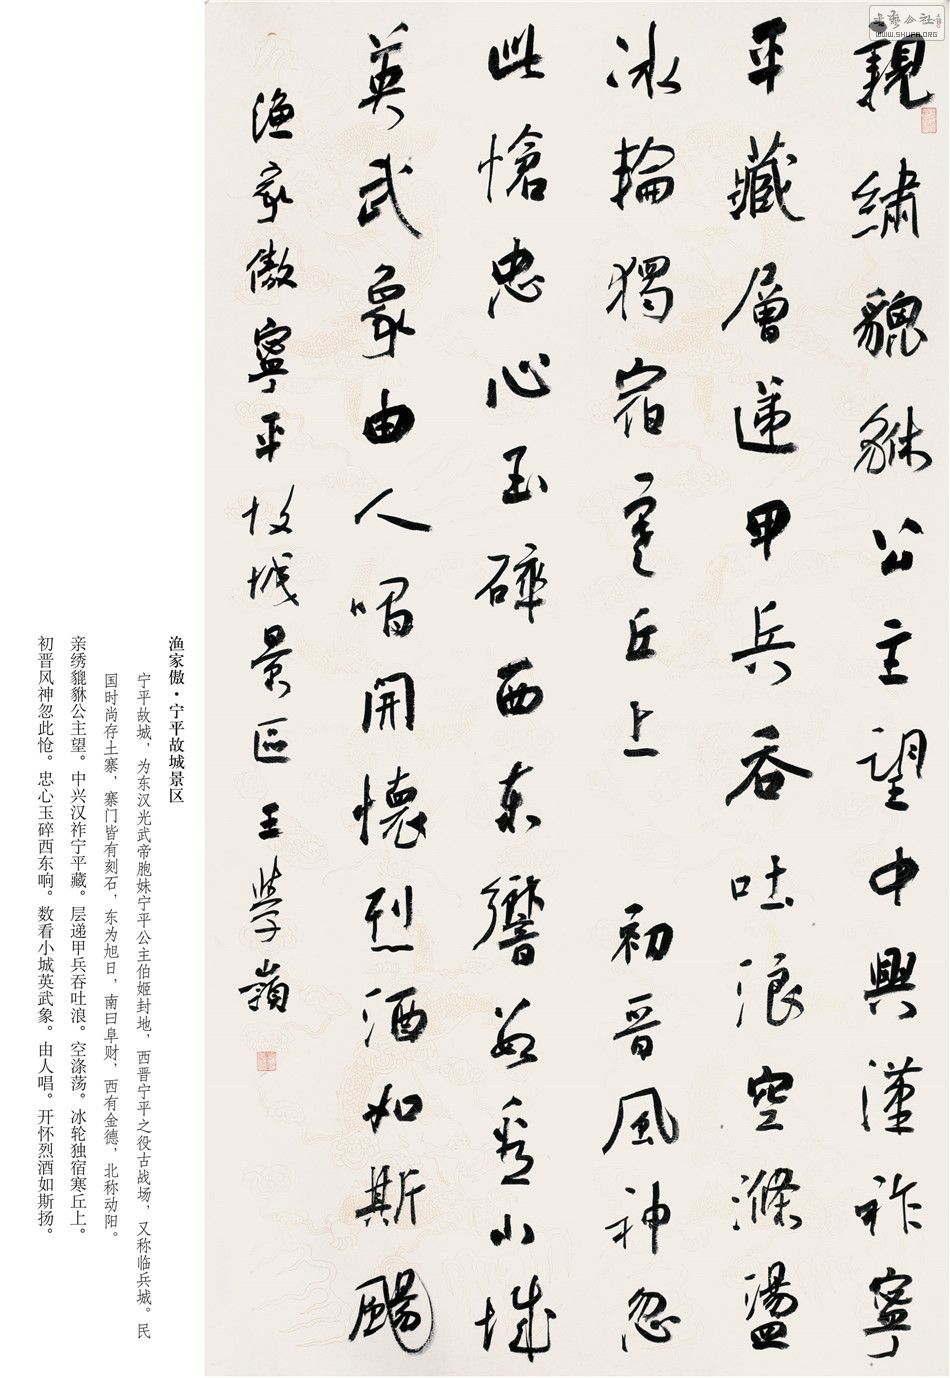 親繡貔貅公主望中興漢祚寧
平藏層遞甲兵吞吐浪空滌盪
冰輪獨宿寒丘上 初晉風神忽
此愴忠心玉碎西東響數看小城
英武象由人唱開懷烈酒如斯颺
漁家傲寧平故城景區 王學嶺
渔家傲·宁平故城景区
宁平故城，为东汉光武帝胞妹宁平公主伯姬封地，西晋宁平之役古战场，又称临兵城。民
国时尚存土寨，寨门皆有刻石，东为旭日，南曰阜财，西有金德，北称动阳。
亲绣貔貅公主望。中兴汉祚宁平藏。层递甲兵吞吐浪。空涤荡。冰轮独宿寒丘上。
初晋风神忽此怆。忠心玉碎西东响。数看小城英武象。由人唱。开怀烈酒如斯扬。
书艺公社
WWW.SHUFA.ORG